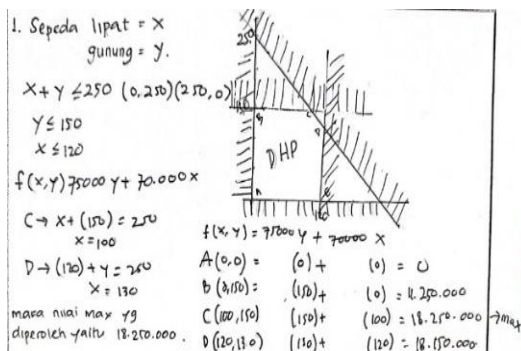 1. Sepeda lipat = X
gunung = y.
X + y ≤ 250 (0,250)(250,0)
y ≤ 150
x ≤ 120
f(x,y) 75000 y + 70.000 x
C → x + (150) = 250
x = 100
D → (120) + y = 250
x = 130
maka nilai max yg
diperoleh yaitu 18.250.000.
250
150
B
C
D
DHP
A
E
120
f(x,y) = 75000 y + 70000 x
A (0,0) = (0) + (0) = 0
B (0,150) (150) + (0) = 11.250.000
C (100,150) (150) + (100) = 18.250.000 → max
D (120,130) (130) + (120) = 18.150.000